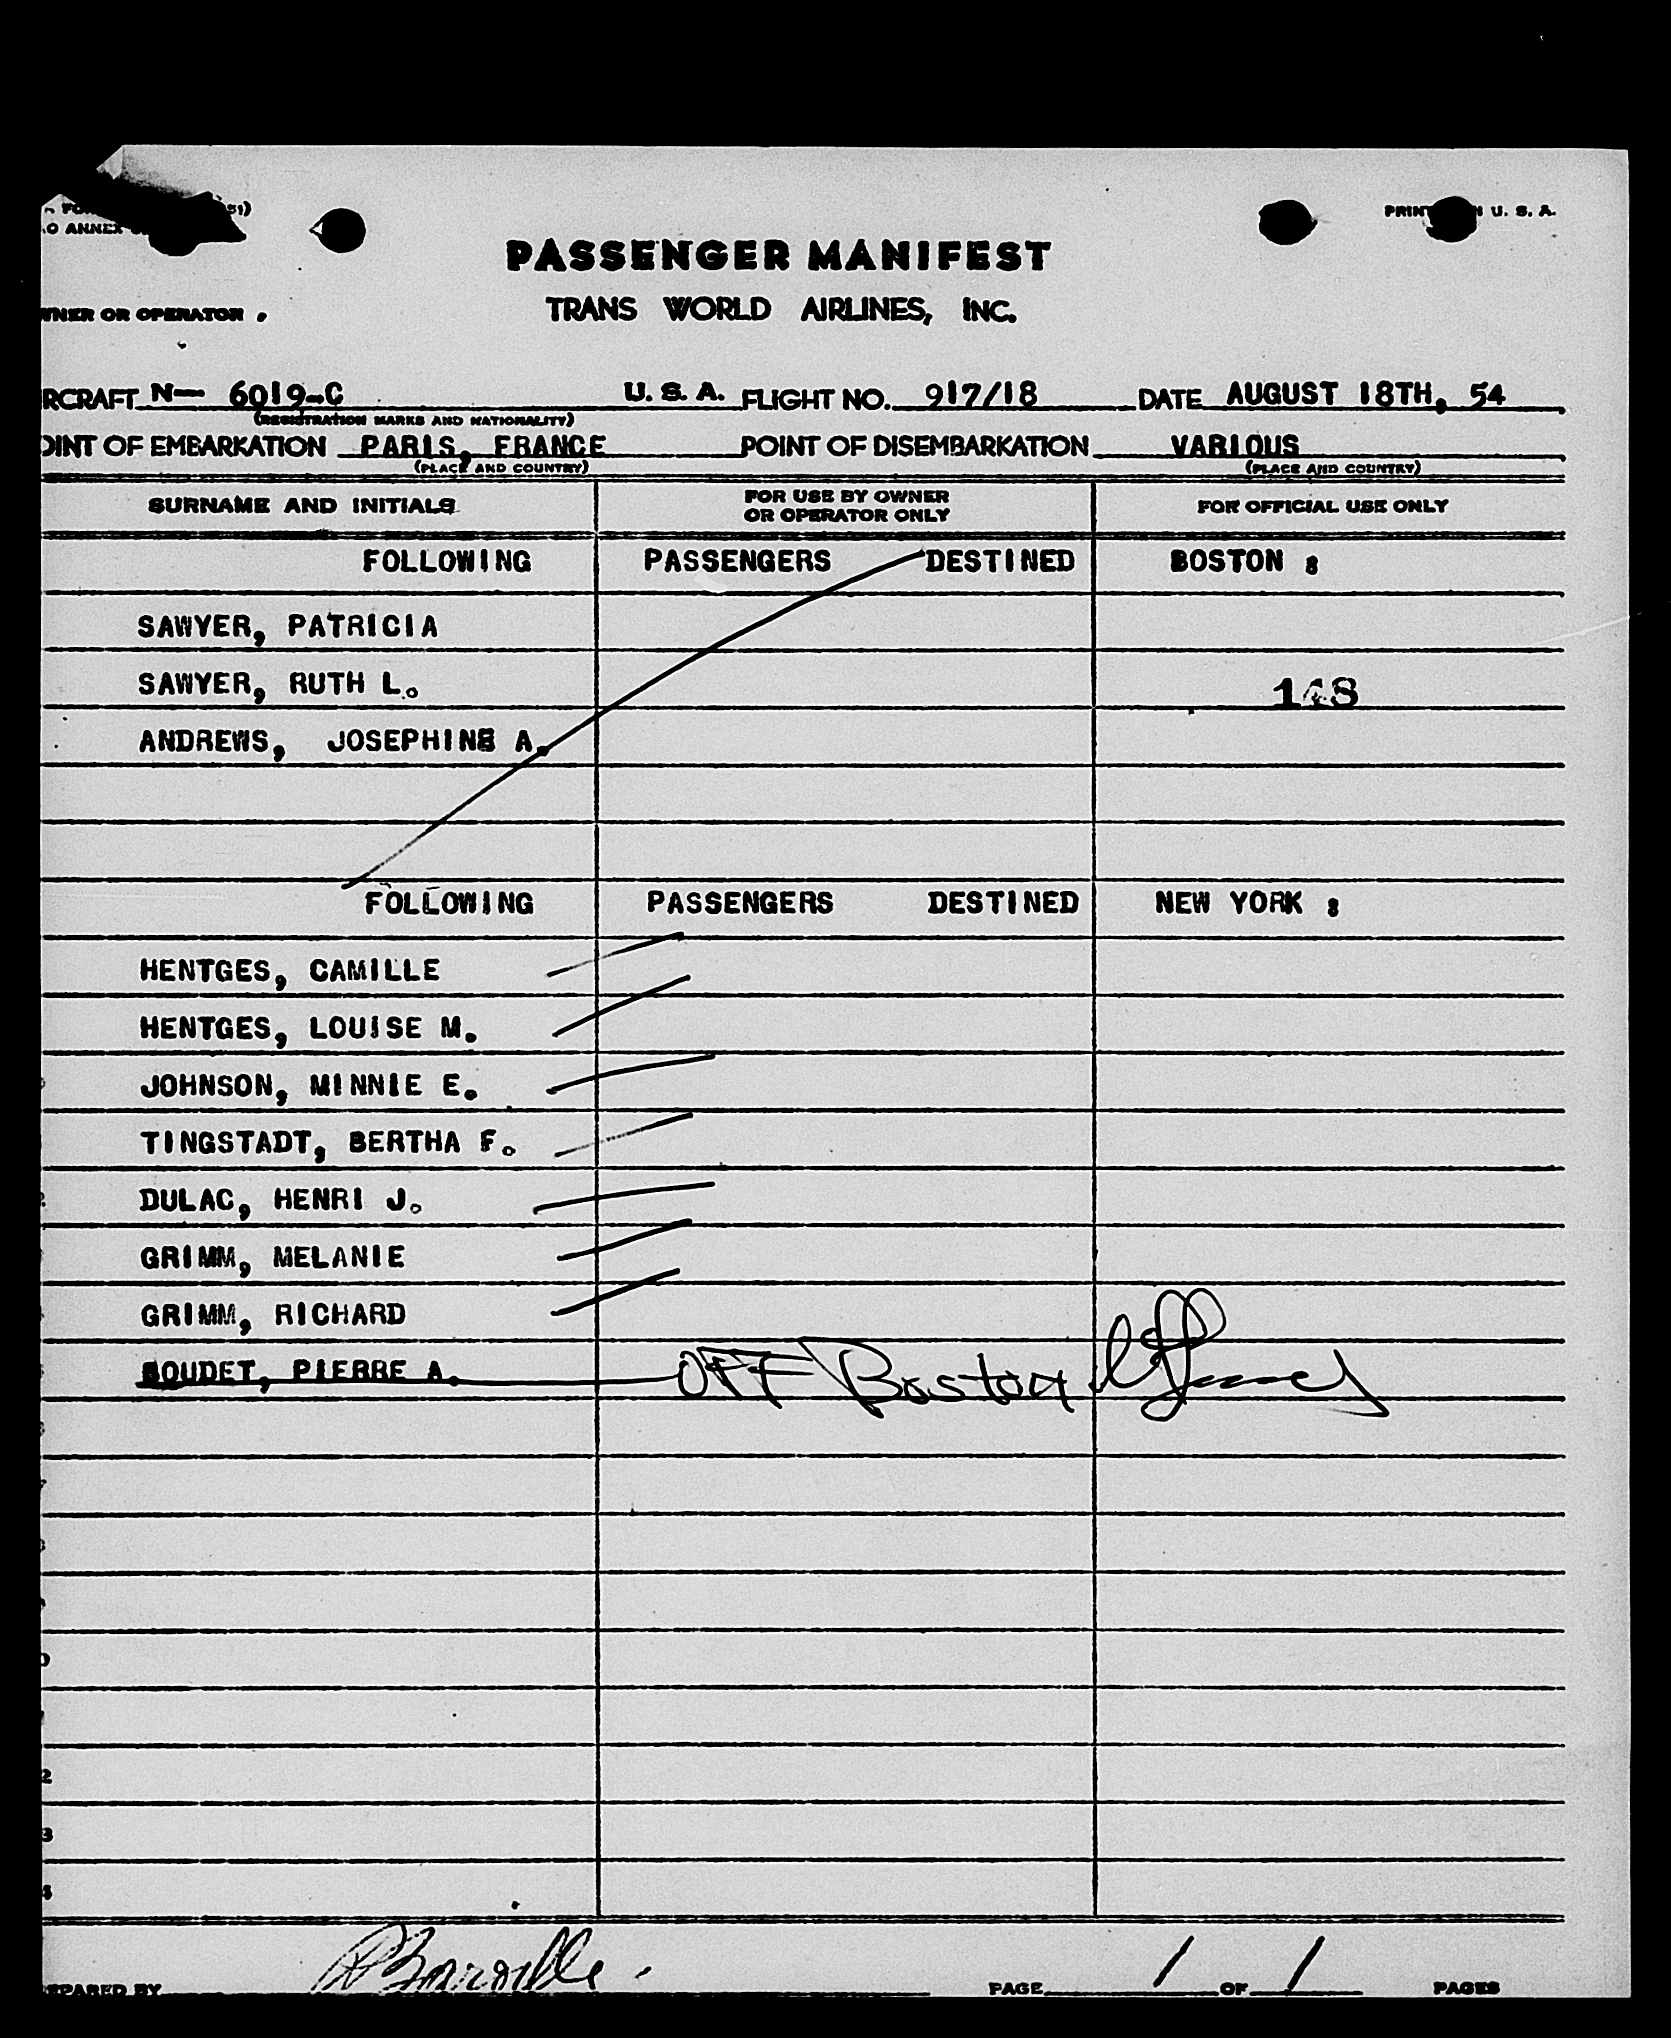 PASSENGER MANIFEST
OR OPERATOR
TRANS WORLD AIRLINES, INC.
RCRAFT N— 6019-C U. S. A. FLIGHT NO. 917/18 DATE AUGUST 18TH, 54
(REGISTRATION MARKS AND NATIONALITY)
OINT OF EMBARKATION PARIS, FRANCE POINT OF DISEMBARKATION VARIOUS
(PLACE AND COUNTRY) (PLACE AND COUNTRY)
SURNAME AND INITIALS FOR USE BY OWNER OR OPERATOR ONLY FOR OFFICIAL USE ONLY
FOLLOWING PASSENGERS DESTINED BOSTON :
SAWYER, PATRICIA
SAWYER, RUTH L.
ANDREWS, JOSEPHINE A.
FOLLOWING PASSENGERS DESTINED NEW YORK :
HENTGES, CAMILLE
HENTGES, LOUISE M.
JOHNSON, MINNIE E.
TINGSTADT, BERTHA F.
DULAC, HENRI J.
GRIMM, MELANIE
GRIMM, RICHARD
BOUDET, PIERRE A. OFF Boston
PAGE 1 OF 1 PAGES